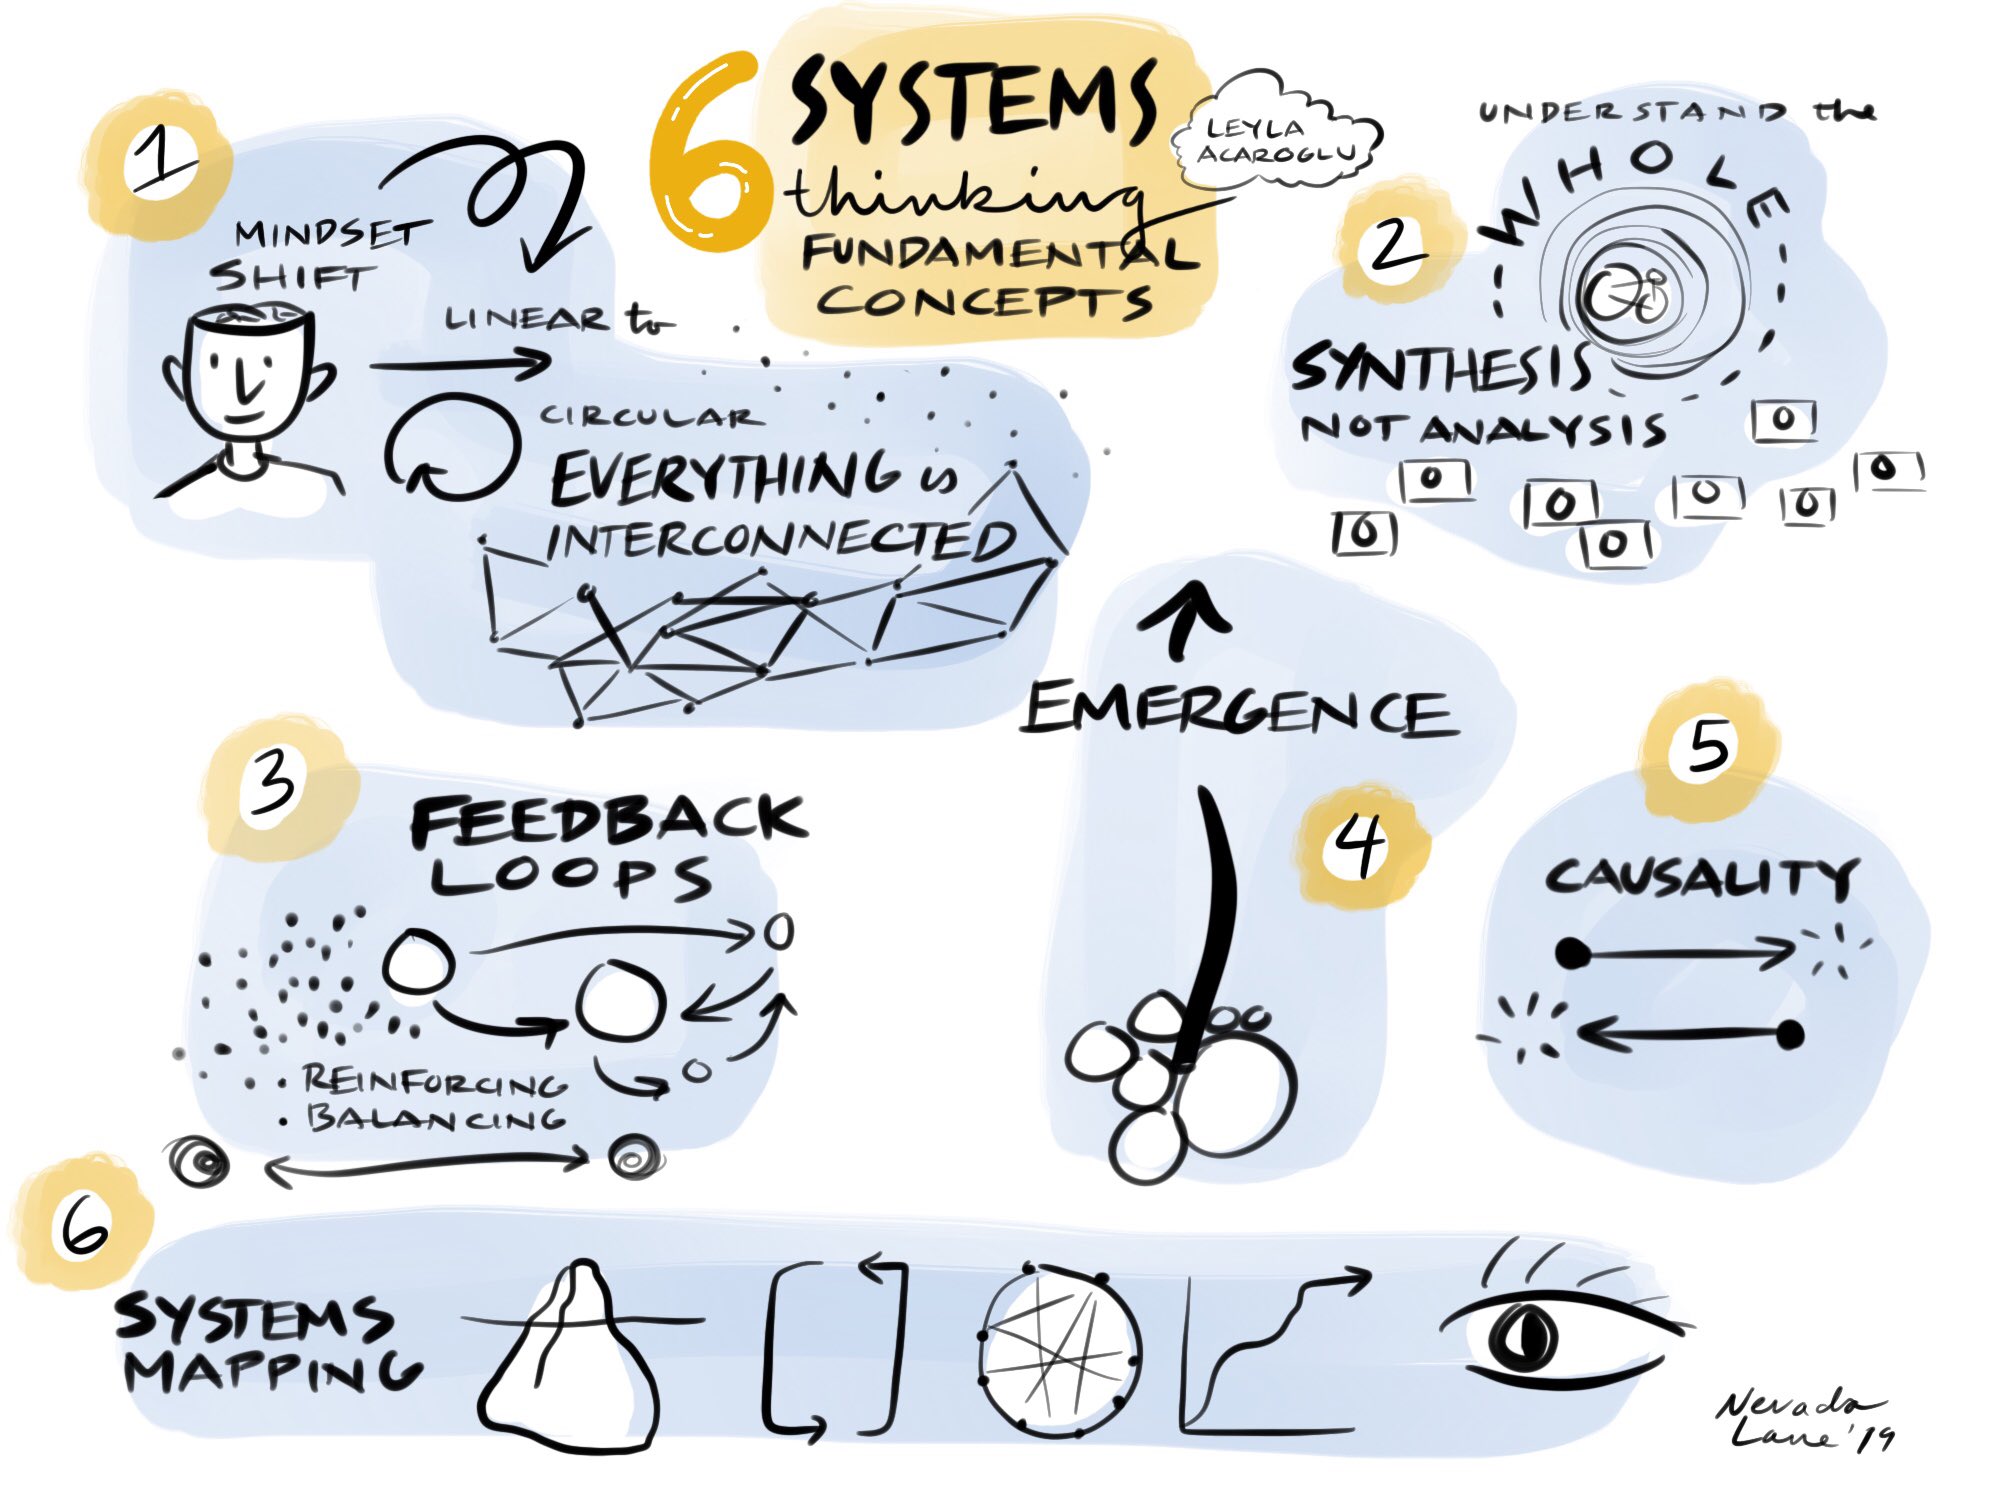 6 SYSTEMS
thinking
FUNDAMENTAL
CONCEPTS
LEYLA
ACAROGLU
1
MINDSET
SHIFT
LINEAR to
CIRCULAR
EVERYTHING is
INTERCONNECTED
2
UNDERSTAND the
WHOLE
SYNTHESIS
NOT ANALYSIS
3
FEEDBACK
LOOPS
• REINFORCING
• BALANCING
4
EMERGENCE
5
CAUSALITY
6
SYSTEMS
MAPPING
Nevada
Lane '19